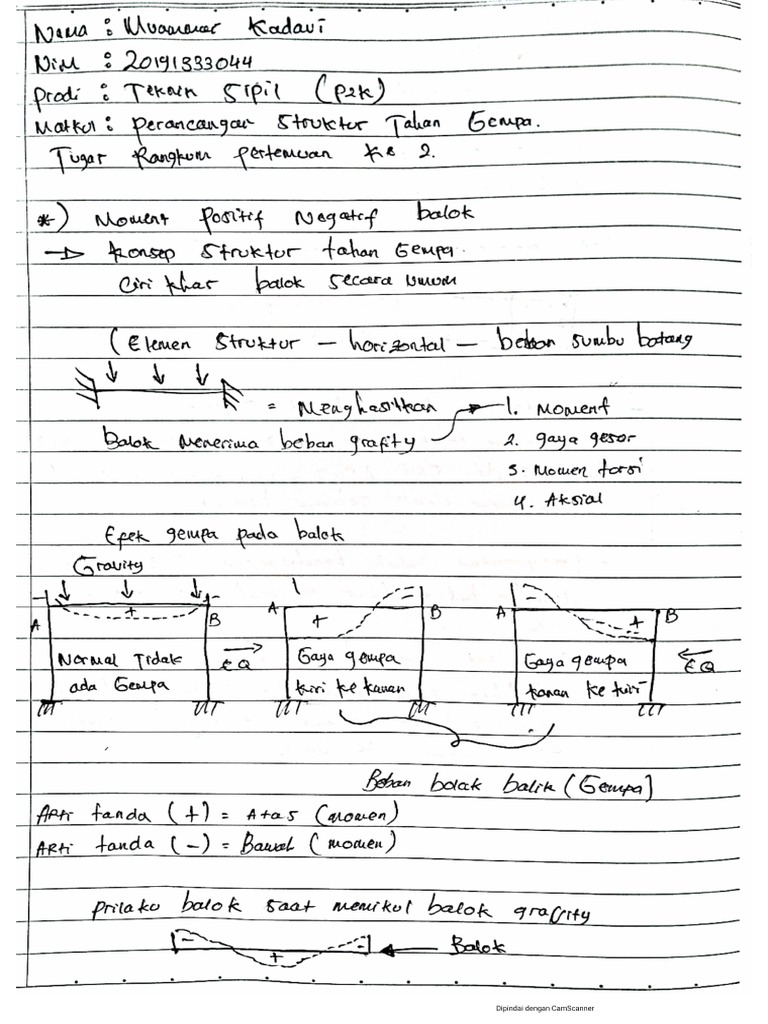 Nama : Muammar Kadavi
Nim : 20191333044
Prodi : Teknik Sipil (P2K)
Matkul : Perancangan Struktur Tahan Gempa.
Tugas Rangkum pertemuan Ke 2.
*) Moment positif Negatif balok
→ Konsep Struktur tahan Gempa.
Ciri khas balok secara umum
(Elemen Struktur – horizontal – beban sumbu batang
= Menghasilkan 1. Moment
Balok Menerima beban grafity 2. gaya geser
3. Momen torsi
4. Aksial
Efek gempa pada balok
Gravity
- + - A B
Normal Tidak ada Gempa
EQ
A + - B
Gaya gempa kiri ke kanan
A - + B
Gaya gempa kanan ke kiri
EQ
Beban bolak balik (Gempa)
Arti tanda (+) = Atas (momen)
Arti tanda (-) = Bawah (momen)
Prilaku balok saat memikul balok grafity
- + - ← Balok
Dipindai dengan CamScanner